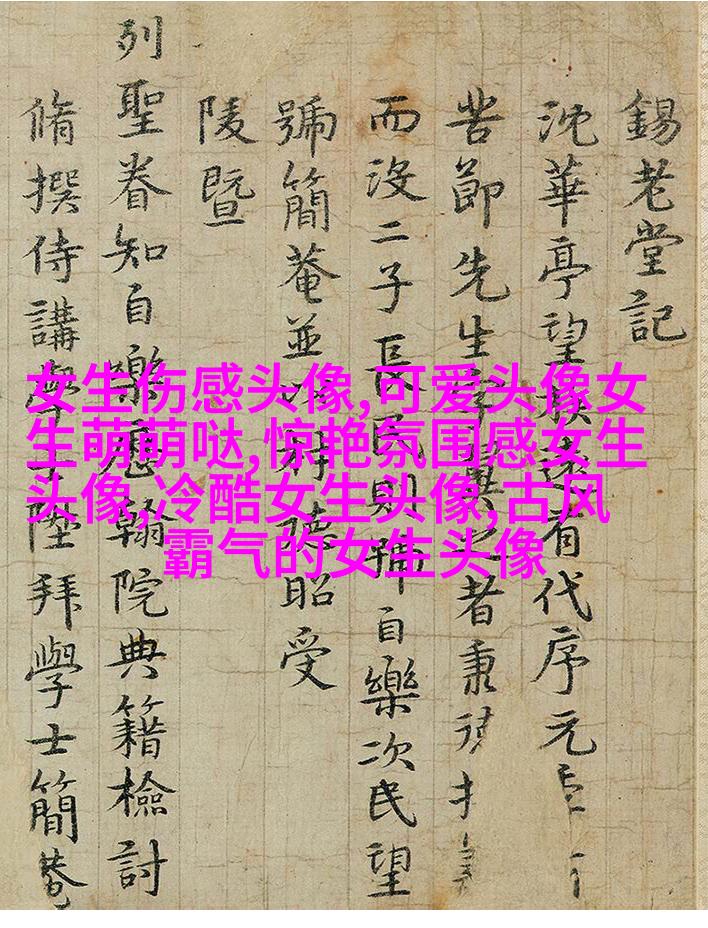 錫老堂記
沈華亭望族遠有代序元
苦節先生之者秉
而沒二子長民則號自樂次民望
號簡菴並以昭受
陵暨
列聖眷知自樂歷翰院典籍檢討
脩撰侍講學士陞拜學士簡菴
女生伤感头像,可爱头像女
生萌萌哒,惊艳氛围感女生
头像,冷酷女生头像,古风
霸气的女生头像